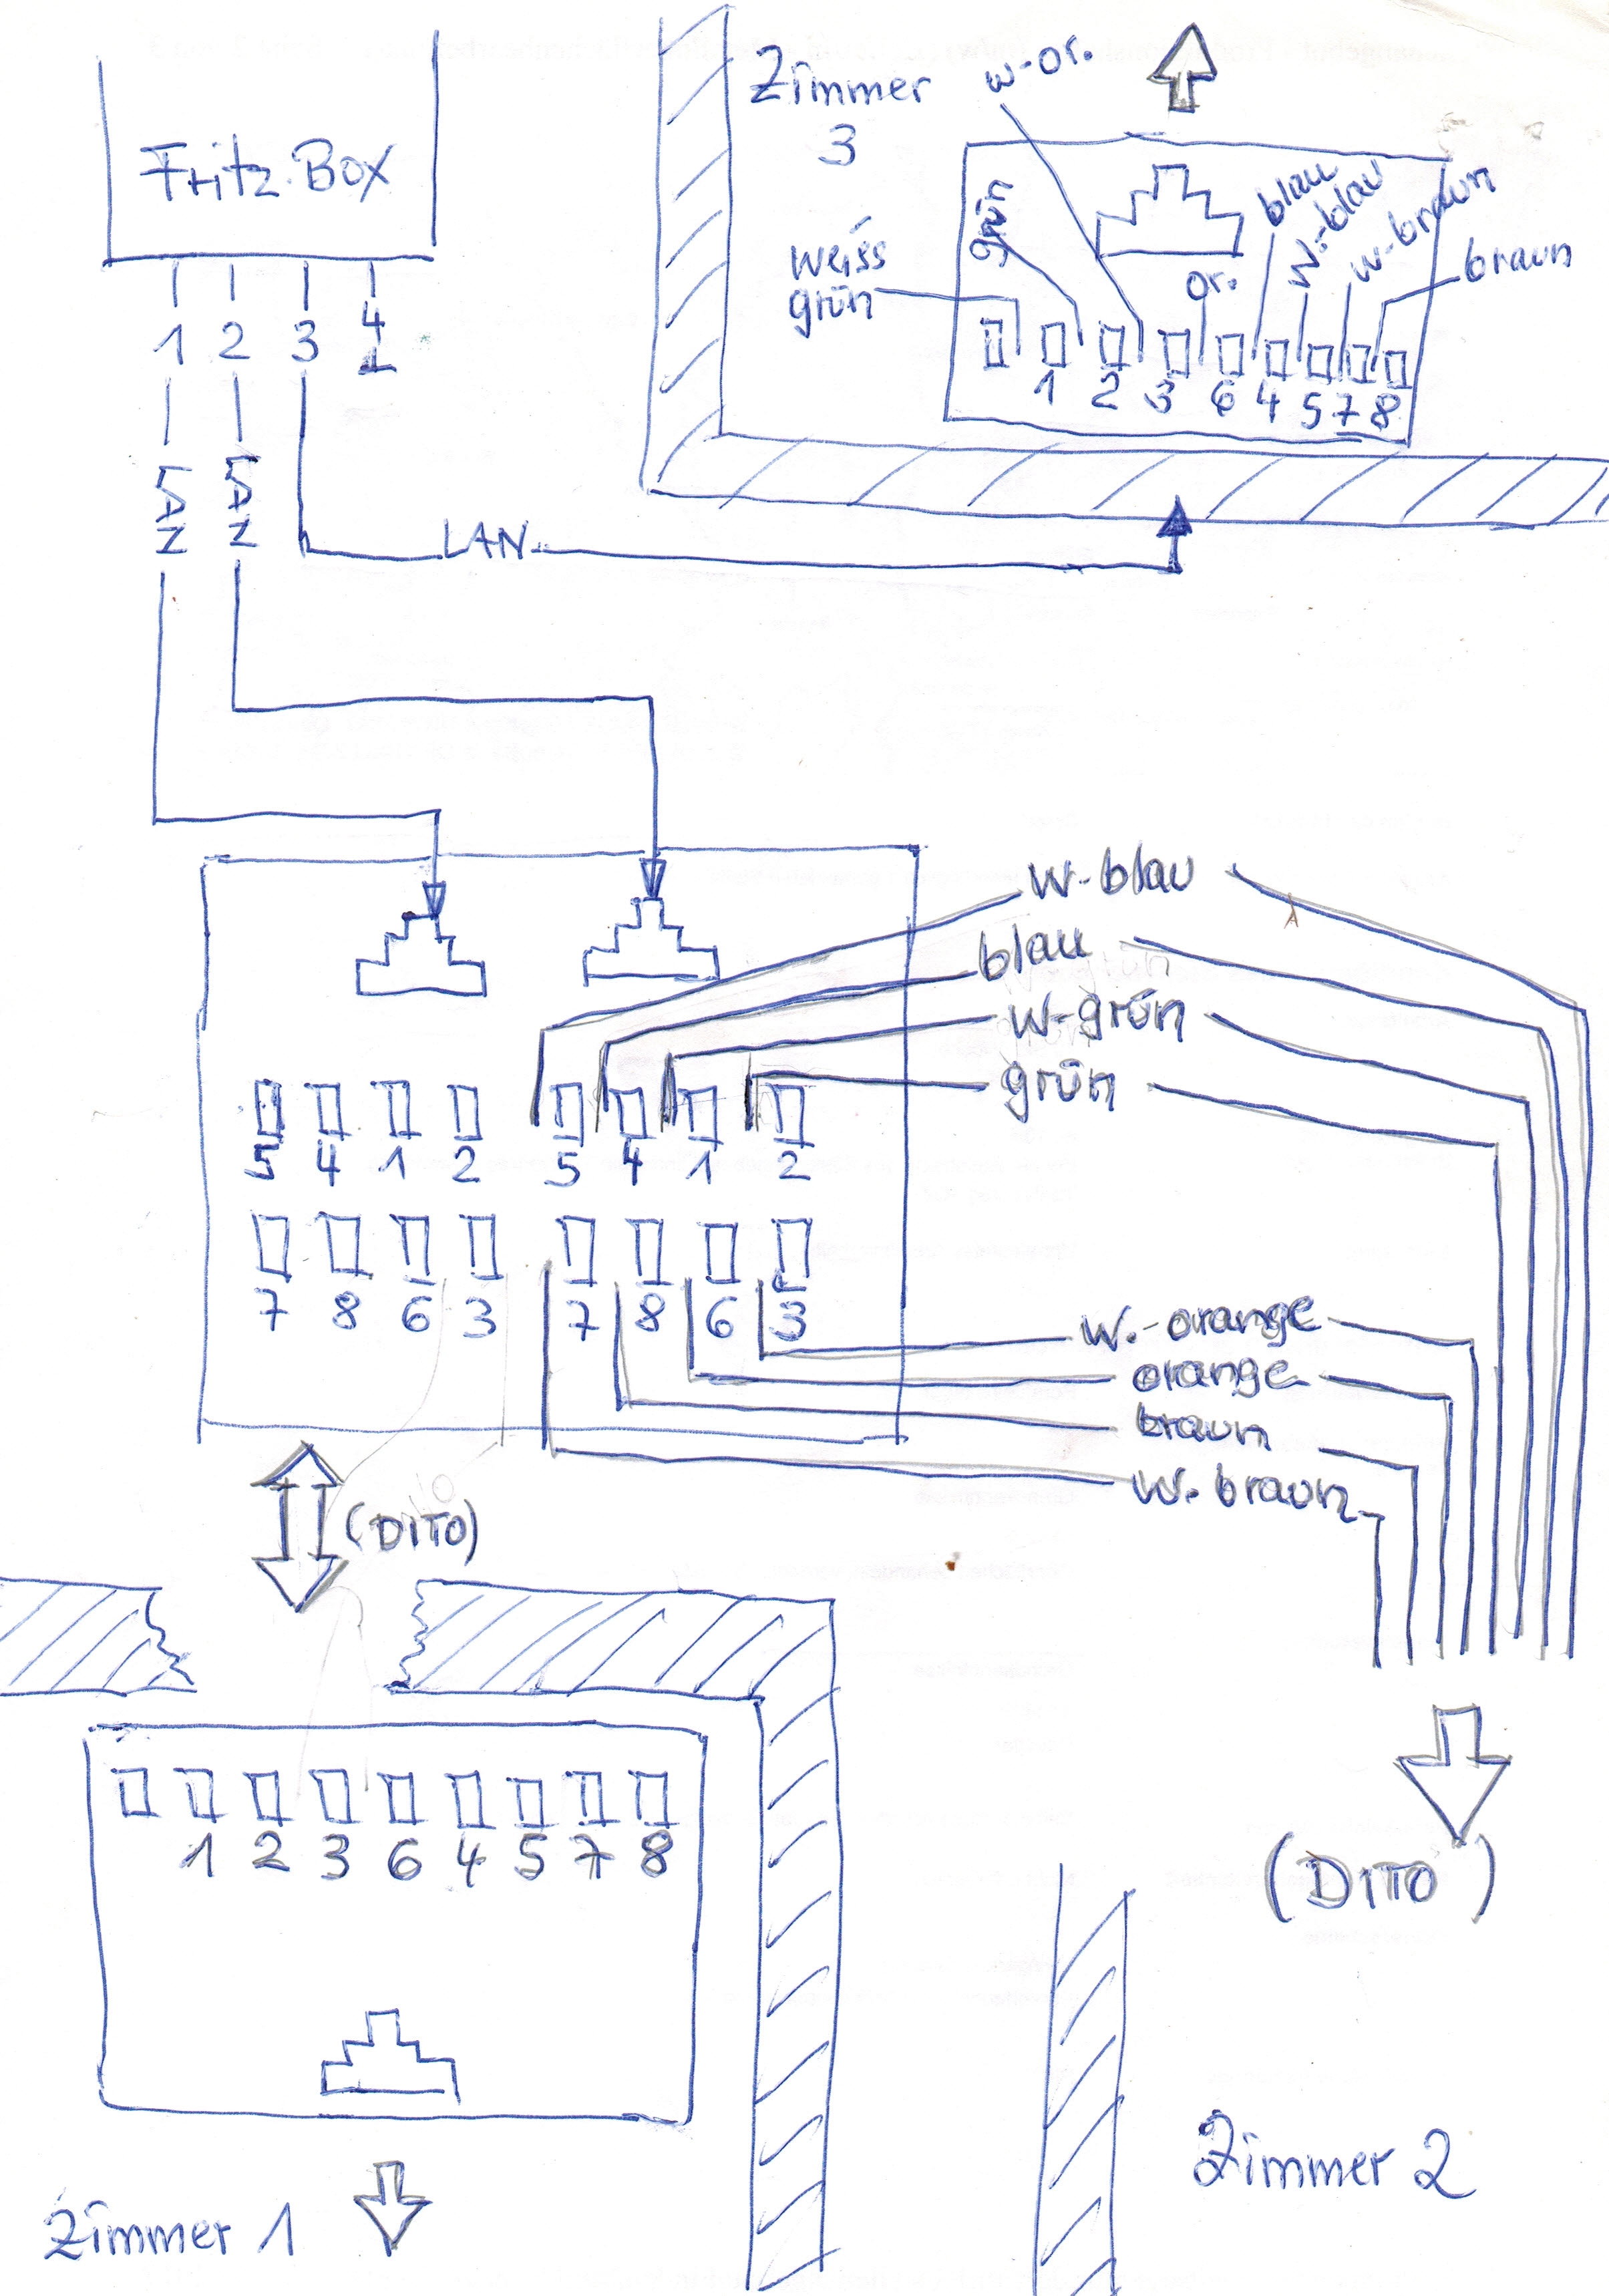 Fritz.Box
1 2 3 4
LAN
LAN
LAN
Zimmer
3
w-or.
weiss
grün
grün
or.
blau
w.-blau
w-braun
braun
1 2 3 6 4 5 7 8
w-blau
blau
w-grün
grün
5 4 1 2 5 4 1 2
7 8 6 3 7 8 6 3
w.-orange
orange
braun
w.braun
(DITO)
1 2 3 6 4 5 7 8
(DITO)
Zimmer 1
Zimmer 2